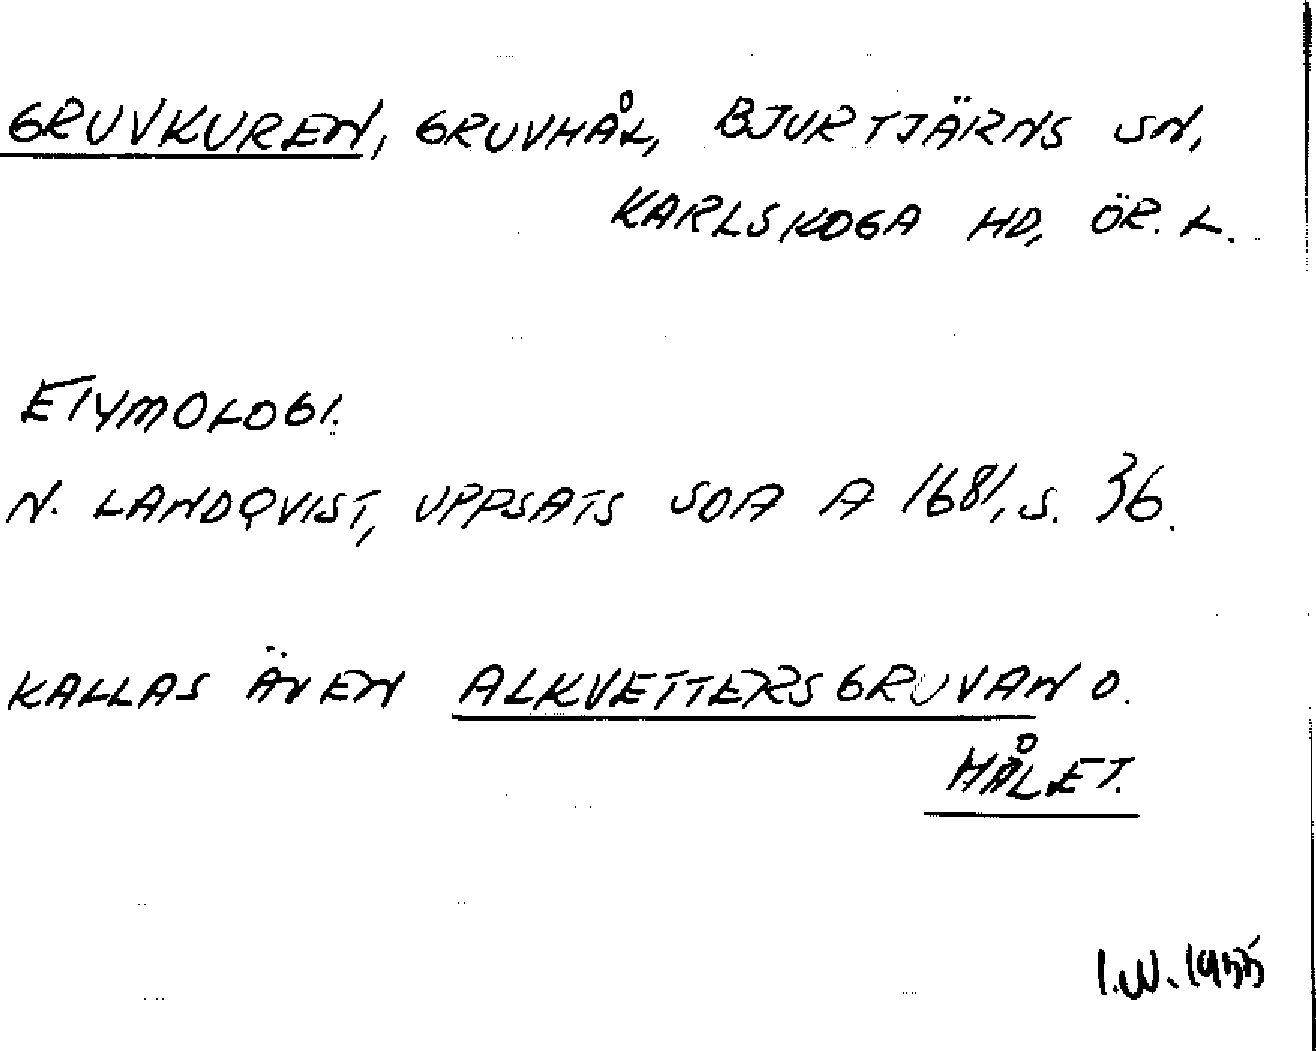 GRUVKUREN, GRUVHÅL, BJURTJÄRNS SN,
KARLSKOGA HD, ÖR. L.
ETYMOLOGI.
N. LANDQVIST, UPPSATS SOA A 1681, S. 36.
KALLAS ÄVEN ALKVETTERSGRUVAN O.
HÅLET.
I.W. 1955